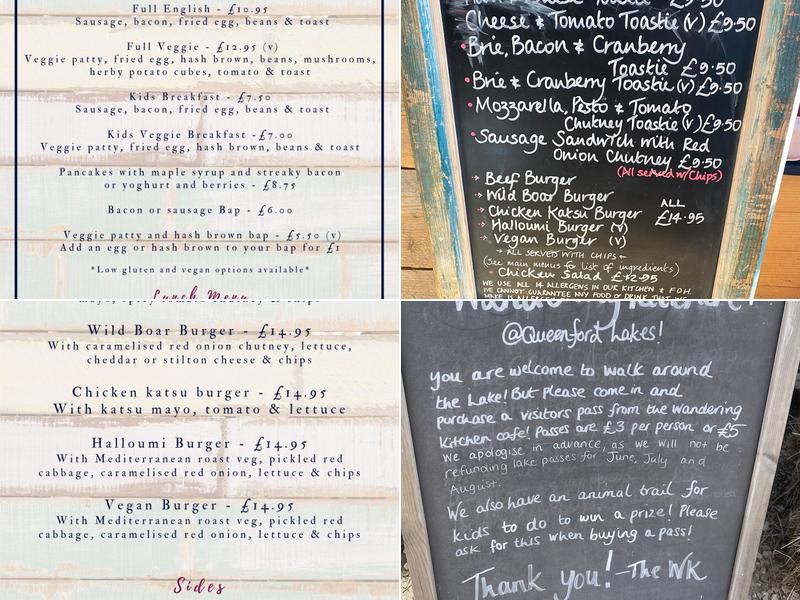 Full English - £10.95
Sausage, bacon, fried egg, beans & toast
Full Veggie - £12.95 (v)
Veggie patty, fried egg, hash brown, beans, mushrooms,
herby potato cubes, tomato & toast
Kids Breakfast - £7.50
Sausage, bacon, fried egg, beans & toast
Kids Veggie Breakfast -£7.00
Veggie patty, fried egg, hash brown, beans & toast
Pancakes with maple syrup and streaky bacon
or yoghurt and berries - £8.75
Bacon or sausage Bap - £6.00
Veggie patty and hash brown bap - £5.50 (v)
Add an egg or hash brown to your bap for £1
*Low gluten and vegan options available*
Lunch Menu
Cheese & Tomato Toastie (v) £9.50
Brie, Bacon & Cranberry
Toastie £9.50
Brie & Cranberry Toastie (v) £9.50
Mozzarella, Pesto & Tomato
Chutney Toastie (v) £9.50
Sausage Sandwich with Red
Onion Chutney £9.50
(All served w/ Chips)
Beef Burger
Wild Boar Burger
Chicken Katsu Burger
Halloumi Burger (v)
Vegan Burger (v)
ALL
£14.95
ALL SERVED WITH CHIPS
(See main menus for list of ingredients)
Chicken Salad £12.95
WE USE ALL 14 ALLERGENS IN OUR KITCHEN & F.O.H.
WE CANNOT GUARANTEE ANY FOOD OR DRINK THAT WE
Wild Boar Burger - £14.95
With caramelised red onion chutney, lettuce,
cheddar or stilton cheese & chips
Chicken katsu burger - £14.95
With katsu mayo, tomato & lettuce
Halloumi Burger - £14.95
With Mediterranean roast veg, pickled red
cabbage, caramelised red onion, lettuce & chips
Vegan Burger - £14.95
With Mediterranean roast veg, pickled red
cabbage, caramelised red onion, lettuce & chips
Sides
@Queenford Lakes!
you are welcome to walk around
the Lake! But please come in and
purchase a visitors pass from the Wandering
Kitchen cafe! Passes are £3 per person or £5
We apologise in advance, as we will not be
refunding lake passes for June, July and
August.
We also have an animal trail for
kids to do to win a prize! Please
ask for this when buying a pass!
Thank you! - The WK